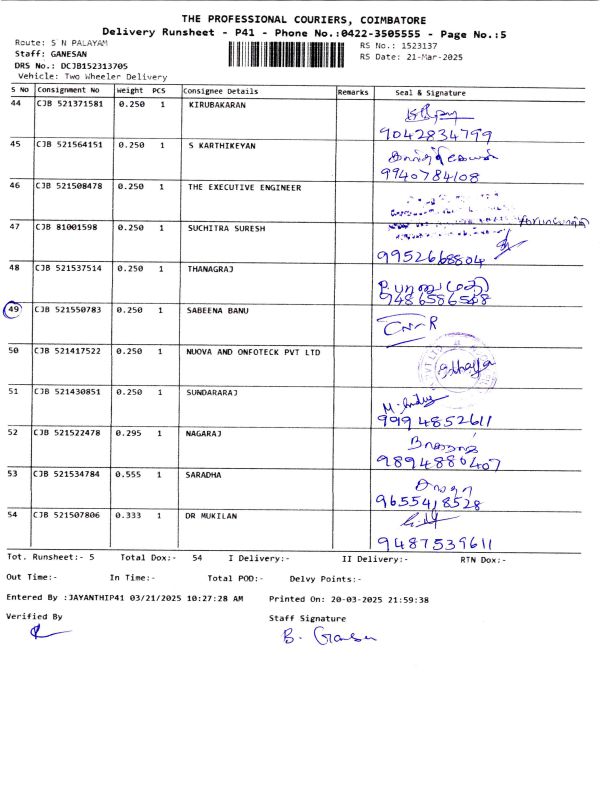 THE PROFESSIONAL COURIERS, COIMBATORE
Delivery Runsheet - P41 - Phone No.:0422-3505555 - Page No.:5
Route: S N PALAYAM
RS No.: 1523137
Staff: GANESAN
RS Date: 21-Mar-2025
DRS No.: DCJB152313705
Vehicle: Two Wheeler Delivery
S No Consignment No Weight PCS Consignee Details Remarks Seal & Signature
44 CJB 521371581 0.250 1 KIRUBAKARAN
9042834799
45 CJB 521564151 0.250 1 S KARTHIKEYAN
9940784108
46 CJB 521508478 0.250 1 THE EXECUTIVE ENGINEER
47 CJB 81001598 0.250 1 SUCHITRA SURESH
9952668804
48 CJB 521537514 0.250 1 THANAGRAJ
9486586508
49 CJB 521550783 0.250 1 SABEENA BANU
50 CJB 521417522 0.250 1 NUOVA AND ONFOTECK PVT LTD
51 CJB 521430851 0.250 1 SUNDARARAJ
9994852611
52 CJB 521522478 0.295 1 NAGARAJ
9894880407
53 CJB 521534784 0.555 1 SARADHA
9655418528
54 CJB 521507806 0.333 1 DR MUKILAN
9487539611
Tot. Runsheet:- 5 Total Dox:- 54 I Delivery:- II Delivery:- RTN Dox:-
Out Time:- In Time:- Total POD:- Delvy Points:-
Entered By :JAYANTHIP41 03/21/2025 10:27:28 AM Printed On: 20-03-2025 21:59:38
Verified By Staff Signature